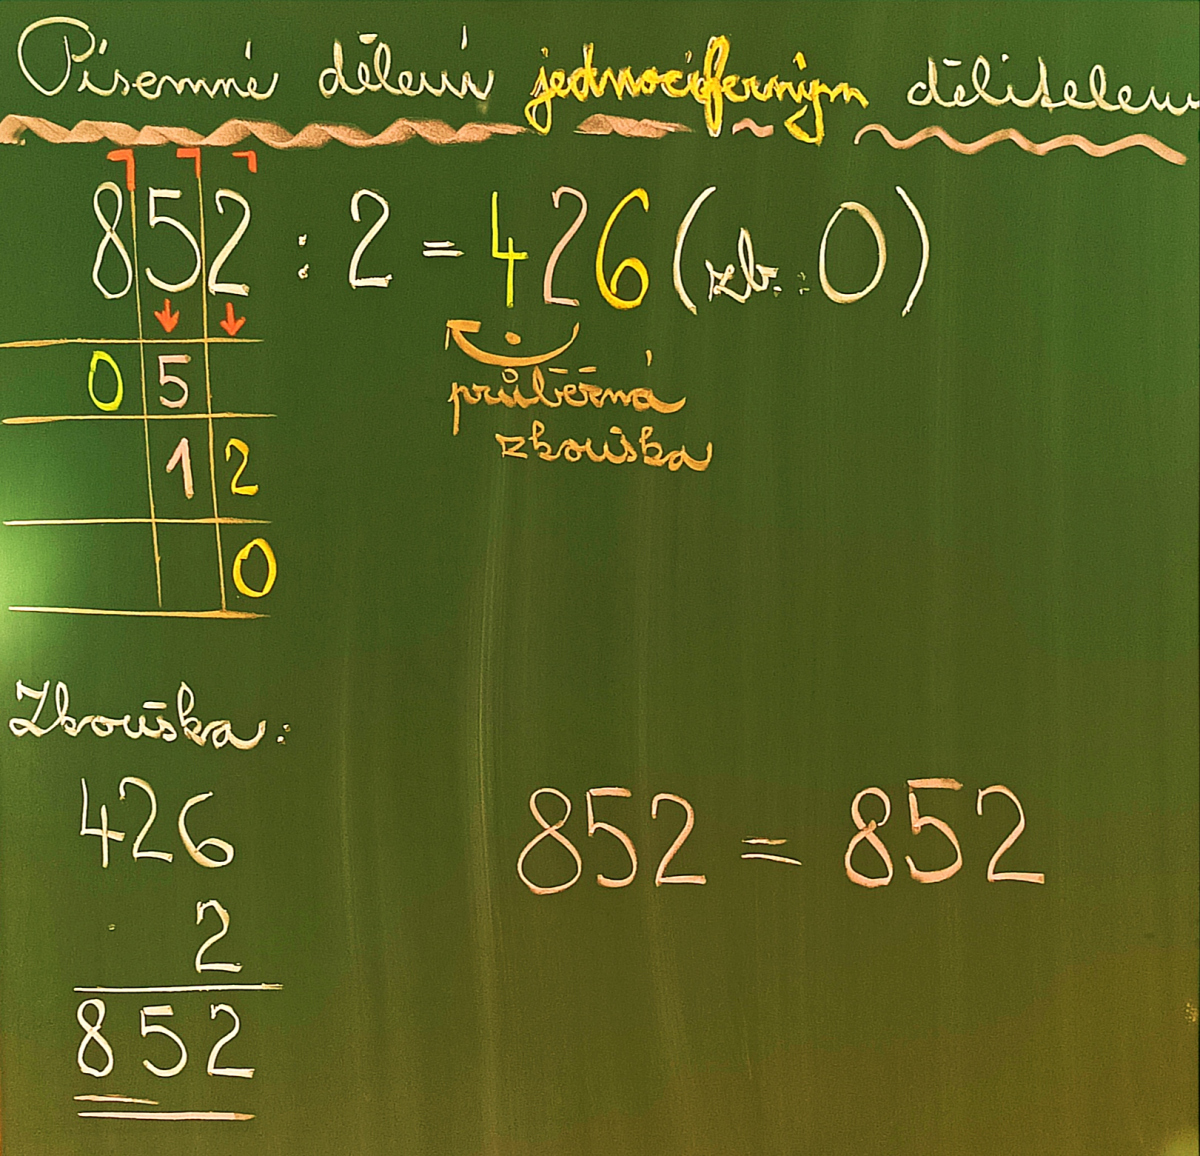 Písemné dělení jednociferným dělitelem
852 : 2 = 426 (zb. : 0)
0 5
průběžná
zkouška
1 2
0
Zkouška:
426
· 2
852
852 = 852